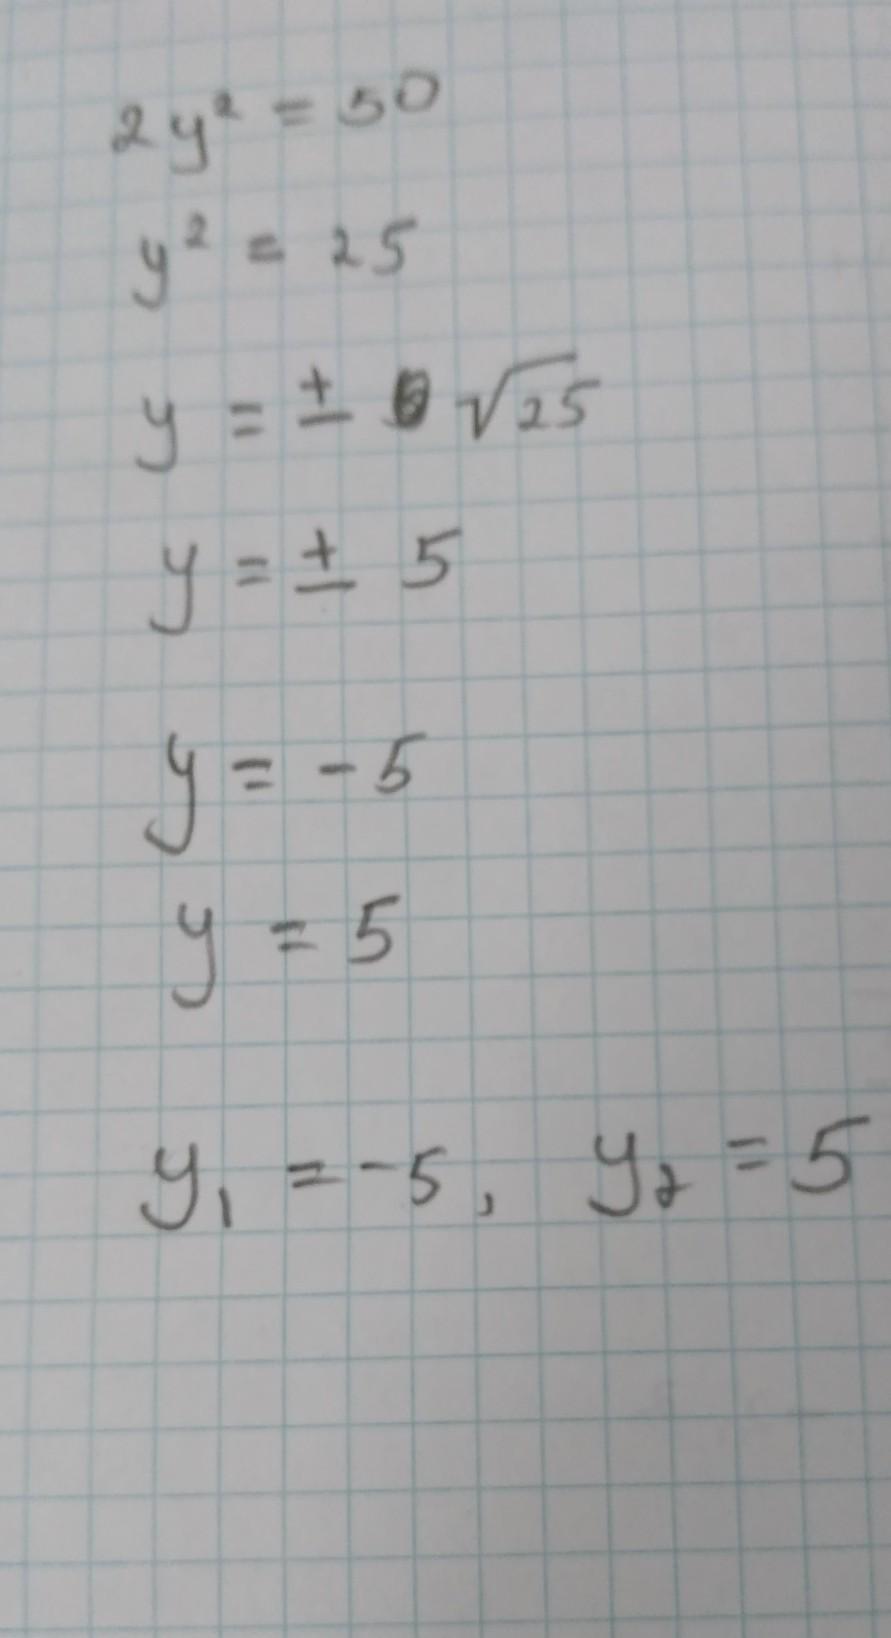 2y² = 50
y² = 25
y = ± √25
y = ± 5
y = -5
y = 5
y₁ = -5, y₂ = 5